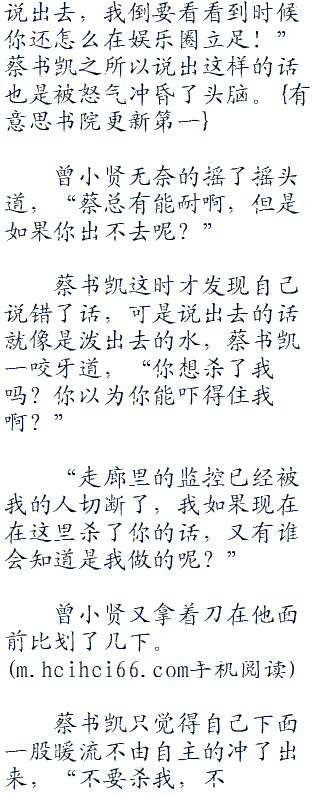 说出去，我倒要看看到时候
你还怎么在娱乐圈立足！”
蔡书凯之所以说出这样的话
也是被怒气冲昏了头脑。{有
意思书院更新第一}
曾小贤无奈的摇了摇头
道，“蔡总有能耐啊，但是
如果你出不去呢？”
蔡书凯这时才发现自己
说错了话，可是说出去的话
就像是泼出去的水，蔡书凯
一咬牙道，“你想杀了我
吗？你以为你能吓得住我
啊？”
“走廊里的监控已经被
我的人切断了，我如果现在
在这里杀了你的话，又有谁
会知道是我做的呢？”
曾小贤又拿着刀在他面
前比划了几下。
(m.hcihci66.com手机阅读)
蔡书凯只觉得自己下面
一股暖流不由自主的冲了出
来，“不要杀我，不